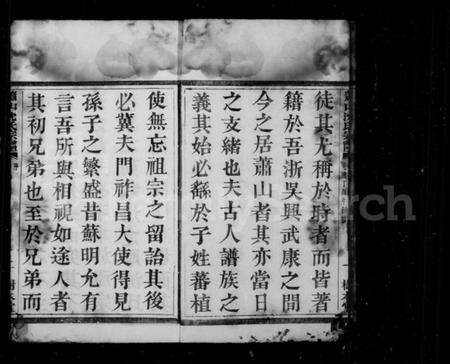 徒其尤稱於時者而皆著
籍於吾浙吳興武康之間
今之居蕭山者其亦當日
之支緒也夫古人譜族之
義其始必繇於子姓蕃植
使無忘祖宗之留詒其後
必冀夫門祚昌大使得見
孫子之繁盛昔蘇明允有
言吾所與相視如途人者
其初兄弟也至於兄弟而